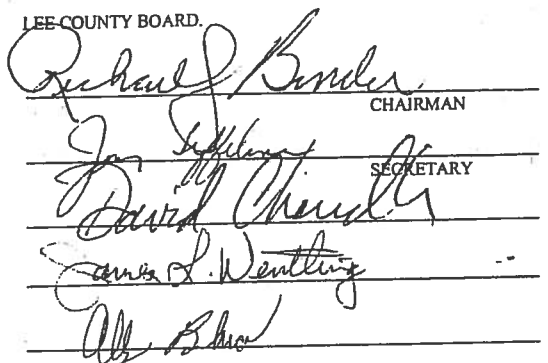 LEE COUNTY BOARD.
Richard J Binder
CHAIRMAN
Jon
SECRETARY
David Chandler
James L. Wentling